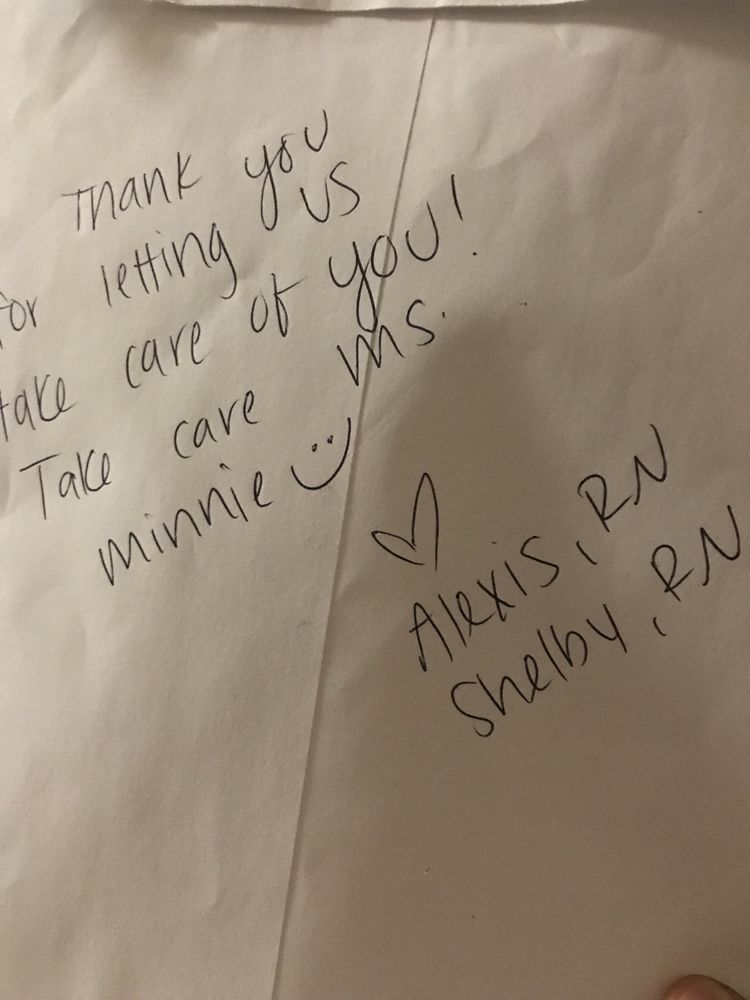 Thank you
for letting us
take care of you!
Take care ms.
minnie :)
♡
Alexis, RN
Shelby, RN